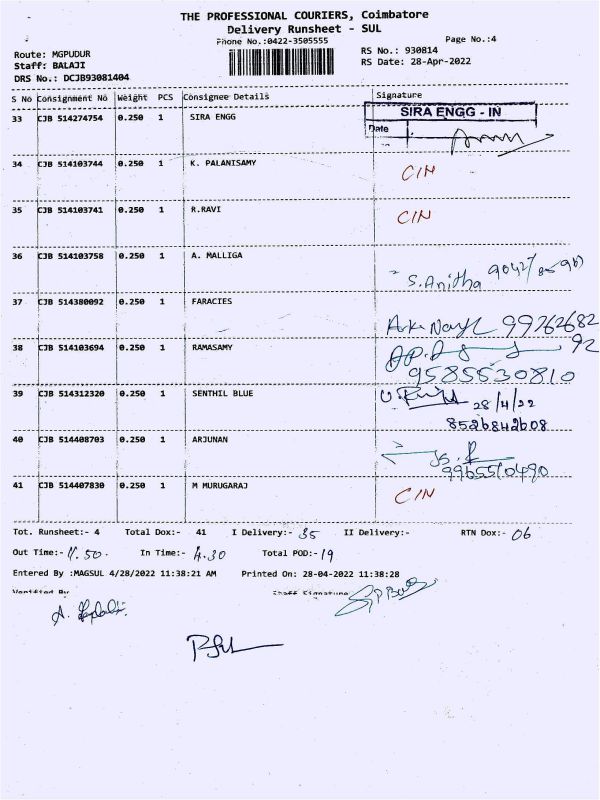 THE PROFESSIONAL COURIERS, Coimbatore
Delivery Runsheet - SUL
Phone No.:0422-3505555
Page No.:4
Route: MGPUDUR
RS No.: 930814
Staff: BALAJI
RS Date: 28-Apr-2022
DRS No.: DCJB93081404
S No Consignment No Weight PCS Consignee Details Signature
33 CJB 514274754 0.250 1 SIRA ENGG SIRA ENGG - IN
Date
34 CJB 514103744 0.250 1 K. PALANISAMY CIN
35 CJB 514103741 0.250 1 R.RAVI CIN
36 CJB 514103758 0.250 1 A. MALLIGA S.Anitha
37 CJB 514380092 0.250 1 FARACIES 99762682
92
38 CJB 514103694 0.250 1 RAMASAMY
9585530810
39 CJB 514312320 0.250 1 SENTHIL BLUE 28/4/22
8526842608
40 CJB 514408703 0.250 1 ARJUNAN
9965510490
41 CJB 514407830 0.250 1 M MURUGARAJ CIN
Tot. Runsheet:- 4 Total Dox:- 41 I Delivery:- 35 II Delivery:- RTN Dox:- 06
Out Time:- 11.50. In Time:- 4.30 Total POD:- 19
Entered By :MAGSUL 4/28/2022 11:38:21 AM Printed On: 28-04-2022 11:38:28
Verified By Staff Signature